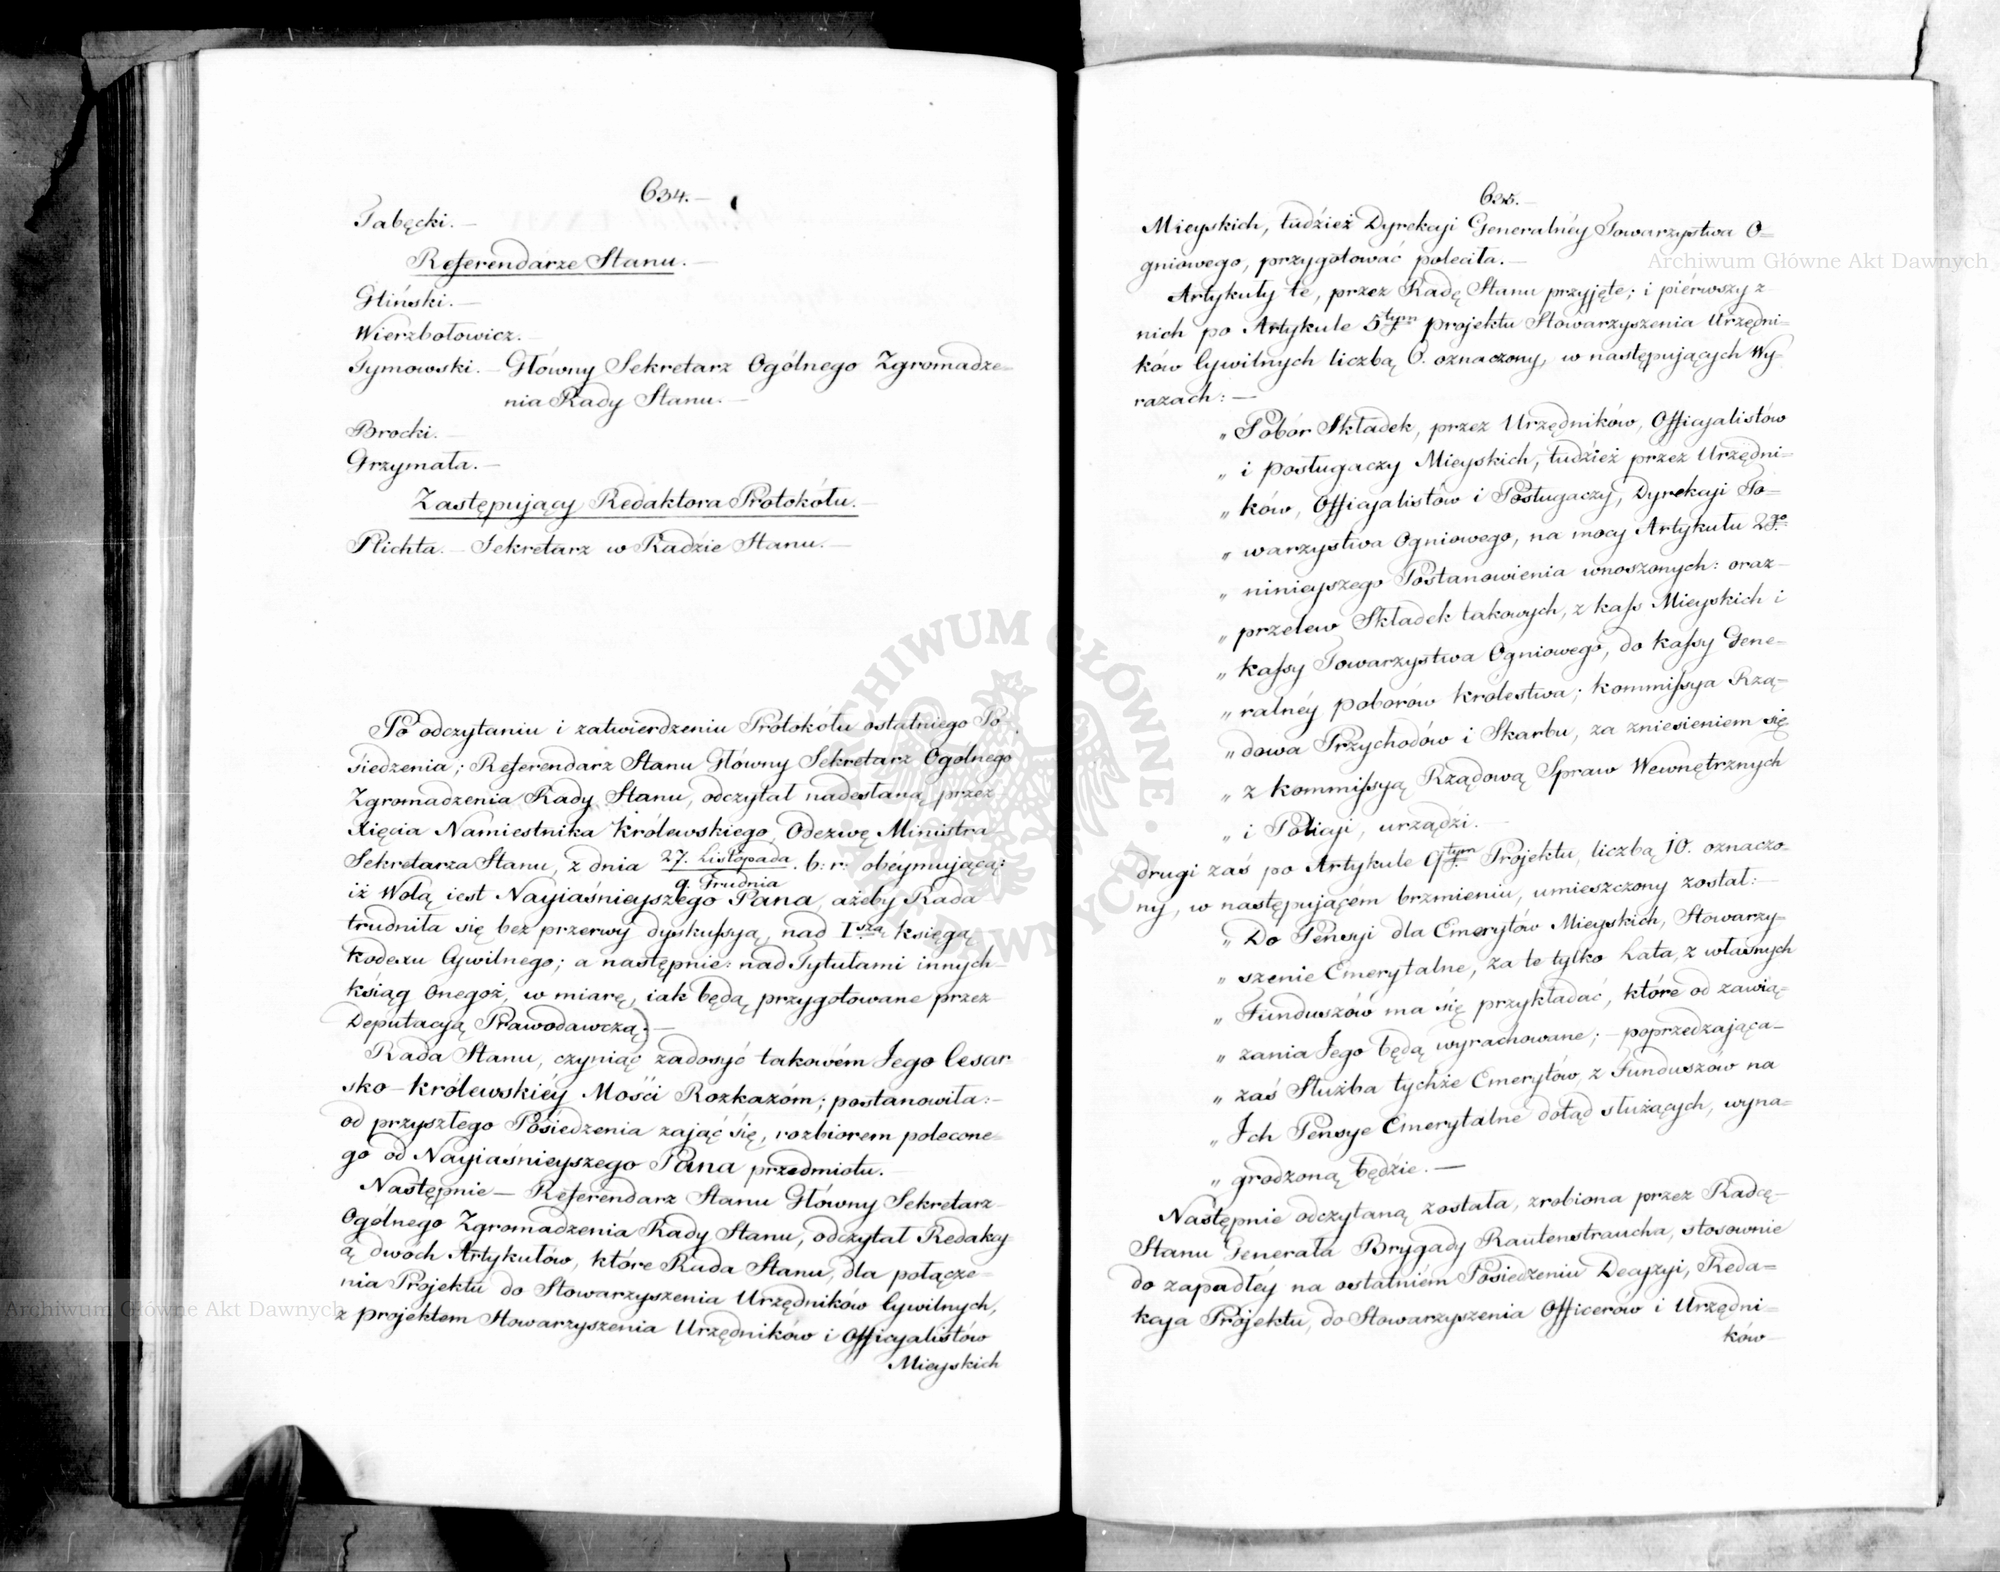 634.
Tabęcki.
Referendarze Stanu.
Gliński.
Wierzbołowicz.
Tymowski. — Główny Sekretarz Ogólnego Zgromadze=
nia Rady Stanu.
Brocki.
Grzymała.
Zastępujący Redaktora Protokółu.
Plichta. — Sekretarz w Radzie Stanu.
Po odczytaniu i zatwierdzeniu Protokółu ostatniego Po
siedzenia; Referendarz Stanu Główny Sekretarz Ogólnego
Zgromadzenia Rady Stanu, odczytał nadesłaną przez
Xięcia Namiestnika Królewskiego, Odezwę Ministra
Sekretarza Stanu, z dnia 27. Listopada / 9. Grudnia b: r: obéymującą:
iż Wolą iest Nayiaśnieyszego Pana, ażeby Rada
trudniła się bez przerwy dyskussyą, nad Iszą księgą
Kodexu Cywilnego; a następnie: nad Tytułami innych
ksiąg onegoż, w miarę, iak będą przygotowane przez
Deputacyą Prawodawczą. —
Rada Stanu, czyniąc zadosyć takowém Jego Cesar
sko-Królewskiéy Mości Rozkazóm; postanowiła: —
od przyszłego Posiedzenia zająć się, rozbiorem polecone=
go od Nayiaśnieyszego Pana przedmiotu. —
Następnie — Referendarz Stanu Główny Sekretarz
Ogólnego Zgromadzenia Rady Stanu, odczytał Redakcy=
ą dwóch Artykułów, które Rada Stanu, dla połącze=
nia Projektu do Stowarzyszenia Urzędników Cywilnych,
z projektem Stowarzyszenia Urzędników i Officyalistów
Mieyskich
635.
Mieyskich, tudzież Dyrekcyi Generalnéy Towarzystwa O=
gniowego, przygotować poleciła. —
Artykuły te, przez Radę Stanu przyjęte; i piérwszy z
nich po Artykule 5tym projektu Stowarzyszenia Urzędni=
ków Cywilnych liczbą 6. oznaczony, w następujących Wy=
razach: —
„ Pobór Składek, przez Urzędników, Officyalistów
„ i posługaczy Mieyskich, tudzież przez Urzędni=
„ ków, Officyalistów i Posługaczy, Dyrekcyi To=
„ warzystwa Ogniowego, na mocy Artykułu 2go
„ ninieyszego Postanowienia wnoszonych: oraz
„ przelew Składek takowych, z kass Mieyskich i
„ kassy Towarzystwa Ogniowego, do kassy Gene=
„ ralnéy poborów Królestwa; Kommissya Rzą=
„ dowa Przychodów i Skarbu, za zniesieniem się
„ z Kommissyą Rządową Spraw Wewnętrznych
„ i Policyi, urządzi. —
drugi zaś po Artykule 9tym Projektu, liczbą 10. oznaczo=
ny, w następującém brzmieniu, umieszczony został: —
„ Do Pensyi dla Emerytów Mieyskich, Stowarzy=
„ szenie Emerytalne, za te tylko Lata, z własnych
„ Funduszów ma się przykładać, które od zawią=
„ zania Jego będą wyrachowane; — poprzedzająca
„ zaś Służba tychże Emerytów, z Funduszów na
„ Ich Pensye Emerytalne dotąd służących, wyna=
„ grodzoną będzie. —
Następnie odczytaną została, zrobiona przez Radcę
Stanu Generała Brygady Rautenstraucha, stosownie
do zapadłéy na ostatniém Posiedzeniu Decyzyi, Reda=
kcya Projektu, do Stowarzyszenia Officerów i Urzędni=
ków
ARCHIWUM GŁÓWNE AKT DAWNYCH
Archiwum Główne Akt Dawnych
Archiwum Główne Akt Dawnych